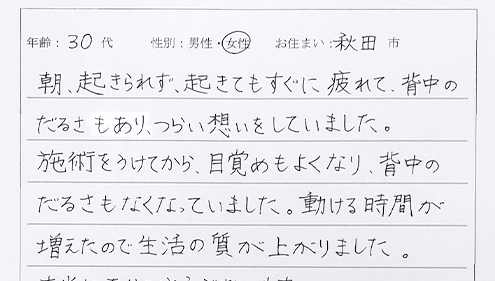 年齢：30代　性別：男性・女性　お住まい：秋田 市
朝、起きられず、起きてもすぐに 疲れて、背中の
だるさもあり、つらい想いをしていました。
施術をうけてから、目覚めもよくなり、背中の
だるさもなくなっていました。動ける時間が
増えたので生活の質が上がりました。